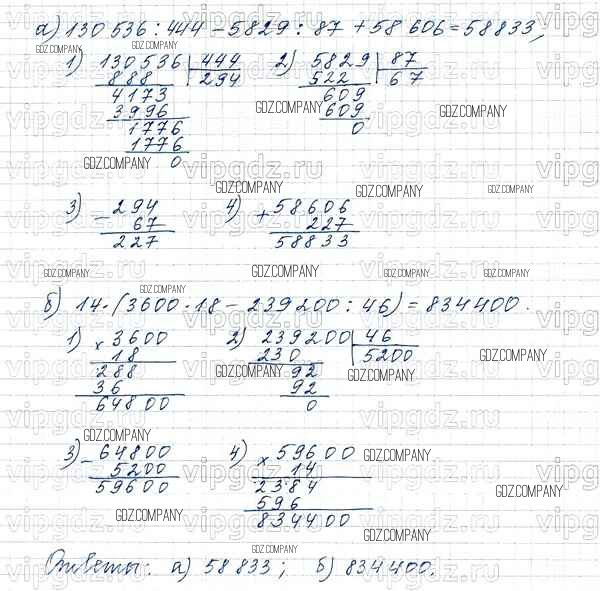 а) 130 536 : 444 − 5829 : 87 + 58 606 = 58833,
1) 130536 | 444 2) 5829 | 87
888 294 522 67
4173 609
3996 609
1776 0
1776
0
3) − 294 4) + 58606
67 227
227 58833
б) 14·(3600·18 − 239200 : 46) = 834400.
1) × 3600 2) 239200 | 46
18 230 5200
288 92
36 92
64800 0
3) − 64800 4) × 59600
5200 14
59600 2384
596
834400
Ответы: а) 58 833; б) 834 400.
vipgdz.ru
GDZ.COMPANY